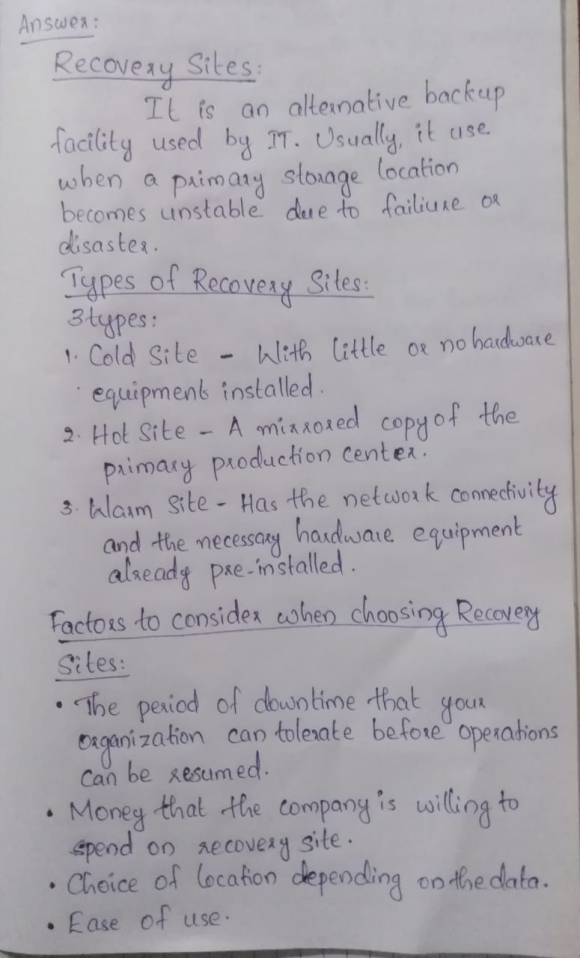 Answer:
Recovery Sites:
It is an alternative backup
facility used by IT. Usually, it use
when a primary storage location
becomes unstable due to failiure or
disaster.
Types of Recovery Sites:
3types:
1. Cold Site - With little or no hardware
equipment installed.
2. Hot Site - A mirrored copy of the
primary production center.
3. Warm Site - Has the network connectivity
and the necessary hardware equipment
already pre-installed.
Factors to consider when choosing Recovery
Sites:
• The period of downtime that your
organization can tolerate before operations
can be resumed.
• Money that the company is willing to
spend on recovery site.
• Choice of location depending on the data.
• Ease of use.